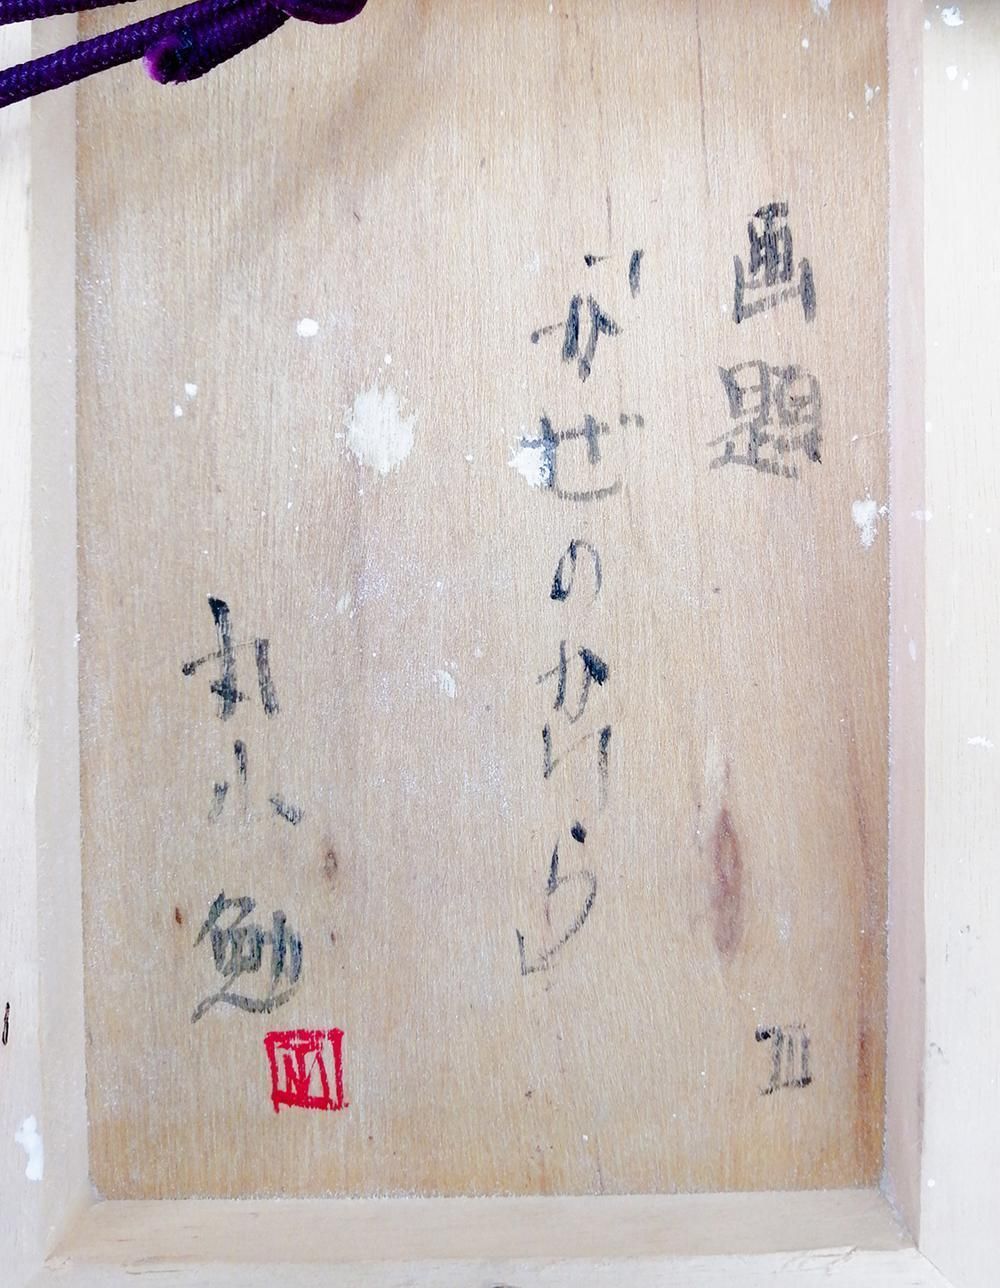 画題 III
「かぜのかけら」
丸山 勉
TM